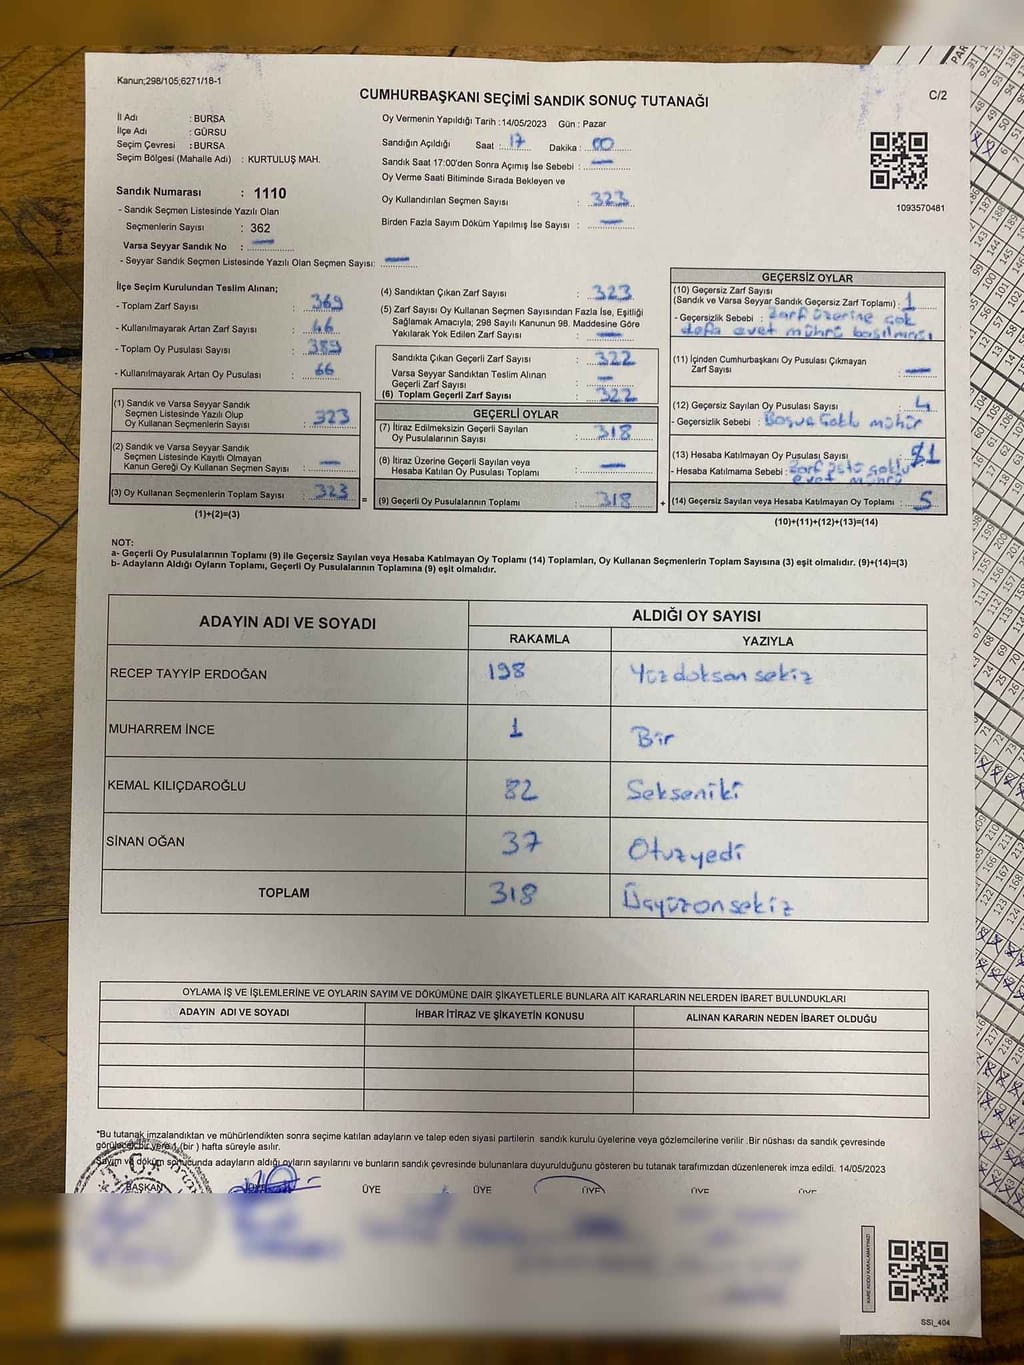 Kanun;298/105;6271/18-1
CUMHURBAŞKANI SEÇİMİ SANDIK SONUÇ TUTANAĞI
C/2
İl Adı : BURSA
İlçe Adı : GÜRSU
Seçim Çevresi : BURSA
Seçim Bölgesi (Mahalle Adı) : KURTULUŞ MAH.
Sandık Numarası : 1110
- Sandık Seçmen Listesinde Yazılı Olan
Seçmenlerin Sayısı : 362
Varsa Seyyar Sandık No : —
- Seyyar Sandık Seçmen Listesinde Yazılı Olan Seçmen Sayısı: —
Oy Vermenin Yapıldığı Tarih :14/05/2023 Gün : Pazar
Sandığın Açıldığı Saat : 17 Dakika : 00
Sandık Saat 17:00'den Sonra Açımış İse Sebebi : —
Oy Verme Saati Bitiminde Sırada Bekleyen ve
Oy Kullandırılan Seçmen Sayısı : 323
Birden Fazla Sayım Döküm Yapılmış İse Sayısı : —
1093570481
İlçe Seçim Kurulundan Teslim Alınan;
- Toplam Zarf Sayısı : 369
- Kullanılmayarak Artan Zarf Sayısı : 46
- Toplam Oy Pusulası Sayısı : 389
- Kullanılmayarak Artan Oy Pusulası : 66
(1) Sandık ve Varsa Seyyar Sandık
Seçmen Listesinde Yazılı Olup
Oy Kullanan Seçmenlerin Sayısı : 323
(2) Sandık ve Varsa Seyyar Sandık
Seçmen Listesinde Kayıtlı Olmayan
Kanun Gereği Oy Kullanan Seçmen Sayısı : —
(3) Oy Kullanan Seçmenlerin Toplam Sayısı : 323 =
(1)+(2)=(3)
(4) Sandıktan Çıkan Zarf Sayısı : 323
(5) Zarf Sayısı Oy Kullanan Seçmen Sayısından Fazla İse, Eşitliği
Sağlamak Amacıyla; 298 Sayılı Kanunun 98. Maddesine Göre
Yakılarak Yok Edilen Zarf Sayısı : —
Sandıkta Çıkan Geçerli Zarf Sayısı : 322
Varsa Seyyar Sandıktan Teslim Alınan
Geçerli Zarf Sayısı : —
(6) Toplam Geçerli Zarf Sayısı : 322
GEÇERLİ OYLAR
(7) İtiraz Edilmeksizin Geçerli Sayılan
Oy Pusulalarının Sayısı : 318
(8) İtiraz Üzerine Geçerli Sayılan veya
Hesaba Katılan Oy Pusulası Toplamı : —
(9) Geçerli Oy Pusulalarının Toplamı : 318 +
GEÇERSİZ OYLAR
(10) Geçersiz Zarf Sayısı
(Sandık ve Varsa Seyyar Sandık Geçersiz Zarf Toplamı) : 1
- Geçersizlik Sebebi : Zarf üzerine çok
defa evet mührü basılması
(11) İçinden Cumhurbaşkanı Oy Pusulası Çıkmayan
Zarf Sayısı : —
(12) Geçersiz Sayılan Oy Pusulası Sayısı : 4
- Geçersizlik Sebebi : çoklu mühür
(13) Hesaba Katılmayan Oy Pusulası Sayısı : 1
- Hesaba Katılmama Sebebi : Zarf çoklu
evet mührü
(14) Geçersiz Sayılan veya Hesaba Katılmayan Oy Toplamı : 5
(10)+(11)+(12)+(13)=(14)
NOT:
a- Geçerli Oy Pusulalarının Toplamı (9) ile Geçersiz Sayılan veya Hesaba Katılmayan Oy Toplamı (14) Toplamları, Oy Kullanan Seçmenlerin Toplam Sayısına (3) eşit olmalıdır. (9)+(14)=(3)
b- Adayların Aldığı Oyların Toplamı, Geçerli Oy Pusulalarının Toplamına (9) eşit olmalıdır.
ADAYIN ADI VE SOYADI
ALDIĞI OY SAYISI
RAKAMLA YAZIYLA
RECEP TAYYİP ERDOĞAN 198 Yüzdoksan sekiz
MUHARREM İNCE 1 Bir
KEMAL KILIÇDAROĞLU 82 Sekseniki
SİNAN OĞAN 37 Otuzyedi
TOPLAM 318 Üçyüzonsekiz
OYLAMA İŞ VE İŞLEMLERİNE VE OYLARIN SAYIM VE DÖKÜMÜNE DAİR ŞİKAYETLERLE BUNLARA AİT KARARLARIN NELERDEN İBARET BULUNDUKLARI
ADAYIN ADI VE SOYADI İHBAR İTİRAZ VE ŞİKAYETİN KONUSU ALINAN KARARIN NEDEN İBARET OLDUĞU
*Bu tutanak imzalandıktan ve mühürlendikten sonra seçime katılan adayların ve talep eden siyasi partilerin sandık kurulu üyelerine veya gözlemcilerine verilir .Bir nüshası da sandık çevresinde
görülecek bir yere 1 (bir ) hafta süreyle asılır.
Sayım ve döküm sonucunda adayların aldığı oyların sayılarını ve bunların sandık çevresinde bulunanlara duyurulduğunu gösteren bu tutanak tarafımızdan düzenlenerek imza edildi. 14/05/2023
BAŞKAN ÜYE ÜYE ÜYE ÜYE ÜYE
KARE KODU KARALAMAYINIZ!
SSİ_404